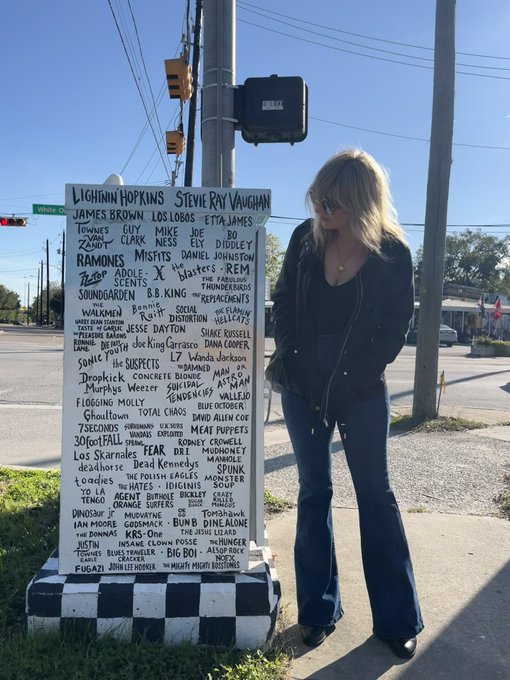 White O
LIGHTNIN' HOPKINS STEVIE RAY VAUGHAN
JAMES BROWN LOS LOBOS ETTA JAMES
TOWNES VAN ZANDT GUY CLARK MIKE NESS JOE ELY BO DIDDLEY
RAMONES MISFITS DANIEL JOHNSTON
ZZ TOP ADOLESCENTS X the blasters REM
THE FABULOUS THUNDERBIRDS
SOUNDGARDEN B.B. KING THE REPLACEMENTS
THE WALKMEN Bonnie Raitt SOCIAL DISTORTION THE FLAMIN' HELLCATS
HARRY DEAN STANTON
TASTE OF GARLIC JESSE DAYTON SHAKE RUSSELL
THE PLEASURE BARONS
RONNIE LANE DIE FAST Joe King Carrasco DANA COOPER
SONIC YOUTH the SUSPECTS L7 Wanda Jackson
THE DAMNED MAN OR ASTROMAN
Dropkick Murphys CONCRETE BLONDE
Weezer SUICIDAL TENDENCIES VALLEJO
FLOGGING MOLLY BLUE OCTOBER
Ghoultown TOTAL CHAOS DAVID ALLEN COE
7SECONDS SUBHUMANS U.K. SUBS MEAT PUPPETS
VANDALS EXPLOITED
30FOOTFALL SPRAWL RODNEY CROWELL
Los Skarnales FEAR D.R.I. MUDHONEY
MANHOLE
deadhorse Dead Kennedys SPUNK
toadies THE POLISH EAGLES MONSTER SOUP
THE HATES IDIGINIS
YO LA TENGO AGENT ORANGE BUTHOLE SURFERS BICKLEY SUGAR SHACK CRAZY KILLED MINGUS
Dinosaur jr MUDVAYNE Tomahawk
IAN MOORE GODSMACK BUN B DINE ALONE
THE DONNAS KRS-One THE JESUS LIZARD
JUSTIN TOWNES EARLE INSANE CLOWN POSSE THE HUNGER
BLUES TRAVELER BIG BOI AESOP ROCK
CRACKER NOFX
FUGAZI JOHN LEE HOOKER THE MIGHTY MIGHTY BOSSTONES